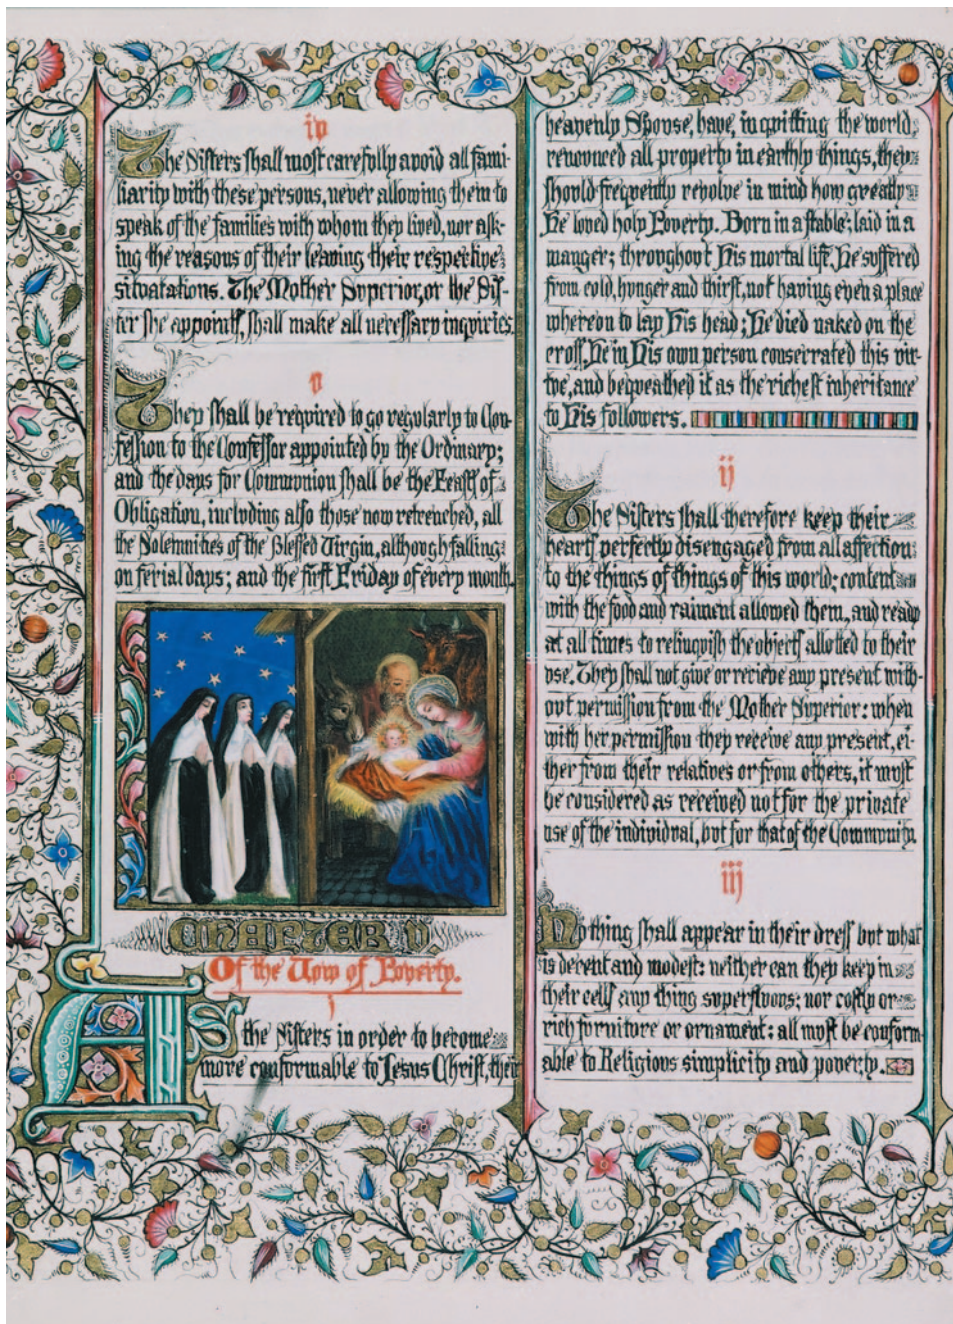 iv
The Sisters shall most carefully avoid all fami-
liarity with these persons, never allowing them to
speak of the families with whom they lived, nor ask-
ing the reasons of their leaving their respective
situatations. The Mother Superior, or the Sis-
ter she appoints, shall make all necessary inquiries.
v
They shall be required to go regularly to Con-
fession to the Confessor appointed by the Ordinary;
and the days for Communion shall be the Feasts of
Obligation, including also those now retrenched, all
the Solemnities of the Blessed Virgin, although falling
on ferial days; and the first Friday of every month.
CHAPTER V.
Of the Vow of Poverty.
i
As the Sisters in order to become
more conformable to Jesus Christ, their
heavenly Spouse, have, in quitting the world,
renounced all property in earthly things, they
should frequently revolve in mind how greatly
He loved holy Poverty. Born in a stable; laid in a
manger; throughout His mortal life, He suffered
from cold, hunger and thirst, not having even a place
whereon to lay His head; He died naked on the
cross. He in His own person consecrated this vir-
tue, and bequeathed it as the richest inheritance
to His followers.
ij
The Sisters shall therefore keep their
hearts perfectly disengaged from all affection
to the things of things of this world; content
with the food and raiment allowed them, and ready
at all times to relinquish the objects allotted to their
use. They shall not give or recieve any present with-
out permission from the Mother Superior: when
with her permission they receive any present, ei-
ther from their relatives or from others, it must
be considered as received not for the private
use of the individual, but for that of the Community.
iij
Nothing shall appear in their dress but what
is decent and modest: neither can they keep in
their cells any thing superfluous; nor costly or
rich furniture or ornament: all must be conform-
able to Religious simplicity and poverty.